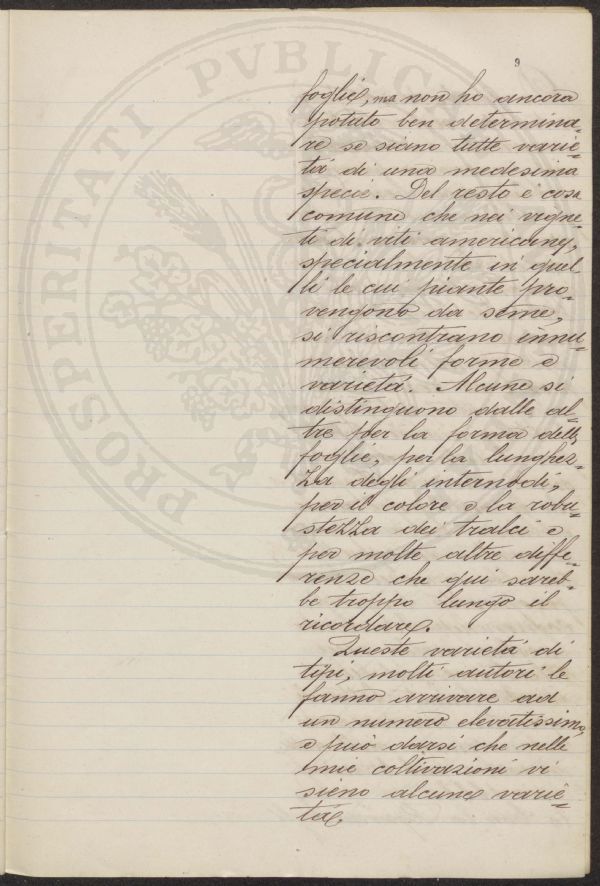 9
foglie, ma non ho ancora
potuto ben determina=
re se siano tutte varie=
tà di una medesima
specie. Del resto è cosa
comune che nei vigne=
ti di viti americane,
specialmente in quel
li le cui piante pro=
vengono da seme,
si riscontrano innu=
merevoli forme e
varietà. Alcune si
distinguono dalle al=
tre per la forma delle
foglie, per la lunghez=
za degli internodi,
per il colore e la robu=
stezza dei tralci e
per molte altre diffe=
renze che qui sareb=
be troppo lungo il
ricordare.
Queste varietà di
tipi, molti autori le
fanno arrivare ad
un numero elevatissimo,
e può darsi che nelle
mie coltivazioni vi
sieno alcune varie=
tà,
PROSPERITATI PVBLIC